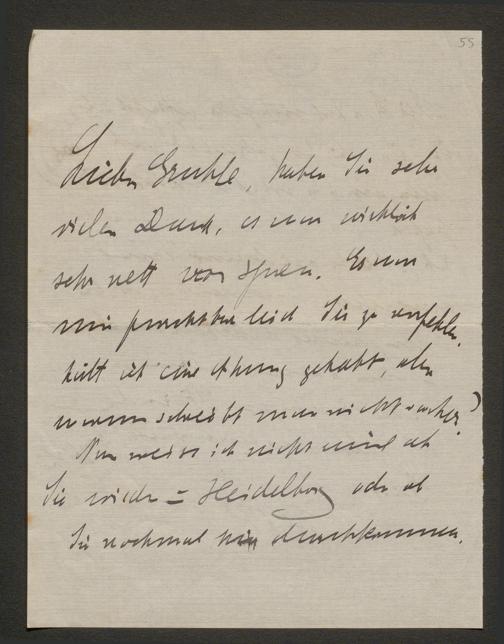 55
Lieber Gruhle, haben Sie sehr
vielen Dank, es war wirklich
sehr nett von Ihnen. Es war
mir furchtbar leid Sie zu verfehlen,
hätt ich eine Ahnung gehabt, aber
warum schreibt man nicht vorher?
Nun weiss ich nicht einmal ob
Sie wieder = Heidelberg oder ob
Sie nochmal hier durchkommen.